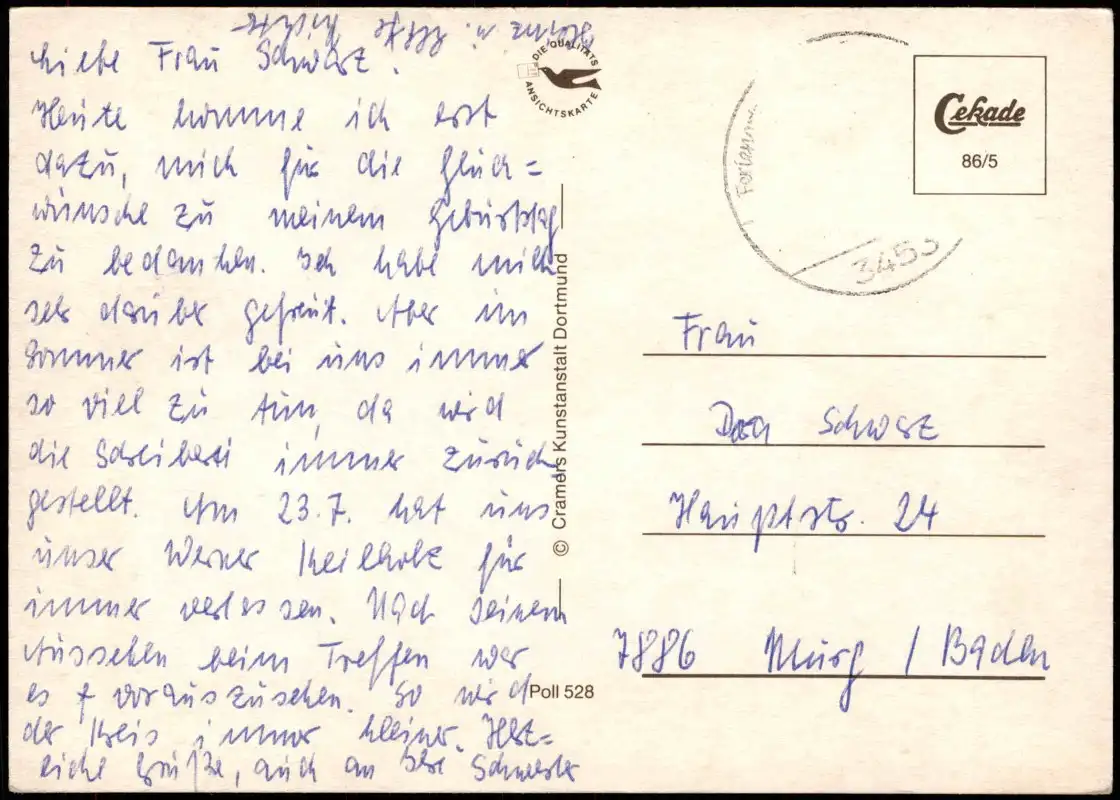 Liebe Frau Schwarz.
Heute komme ich erst
dazu, mich für die Glück=
wünsche zu meinem Geburtstag
zu bedanken. Ich habe mich
sehr darüber gefreut. Aber im
Sommer ist bei uns immer
so viel zu tun, da wird
die Schreiberei immer zurück
gestellt. Am 23.7. hat uns
unser Werner Keilholz für
immer verlassen. Nach seinem
Aussehen beim Treffen war
es vorauszusehen. So wird
der Kreis immer kleiner. Herz=
liche Grüße, auch an Ihre Schwester
u.
DIE QUALITÄTS
ANSICHTSKARTE
© Cramers Kunstanstalt Dortmund
Poll 528
Cekade
86/5
3453
Frau
Schwarz
Hauptstr. 24
7886 Murg / Baden